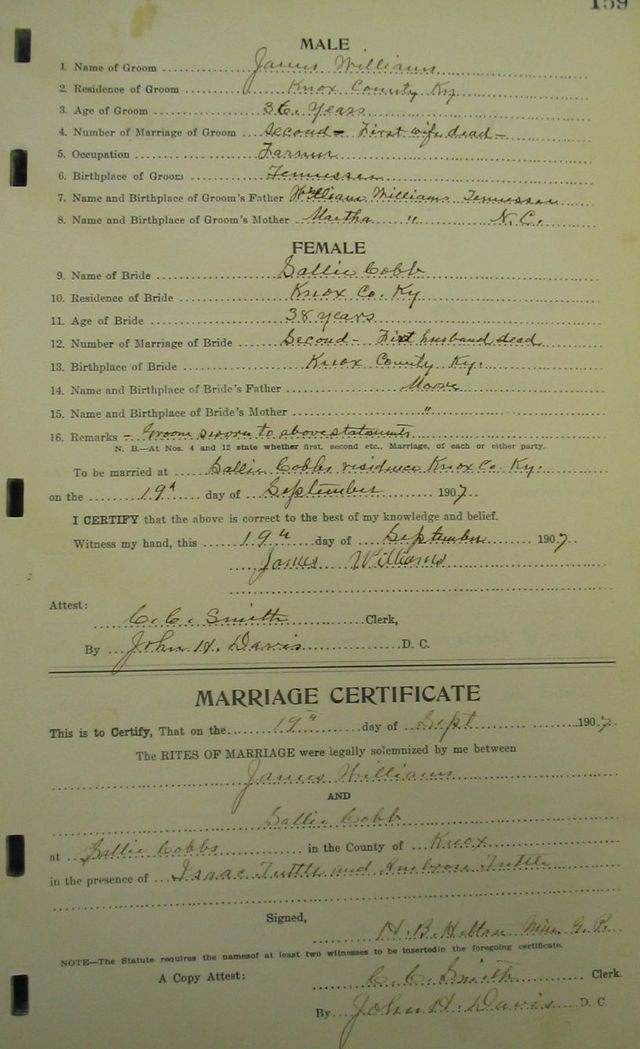 159
MALE
1. Name of Groom James Williams
2. Residence of Groom Knox County Ky
3. Age of Groom 36. Years
4. Number of Marriage of Groom Second - First wife dead -
5. Occupation Farmer
6. Birthplace of Groom Tennessee
7. Name and Birthplace of Groom's Father William Williams Tennessee
8. Name and Birthplace of Groom's Mother Martha " N.C.
FEMALE
9. Name of Bride Sallie Cobb
10. Residence of Bride Knox Co. Ky
11. Age of Bride 38 years
12. Number of Marriage of Bride Second - First husband dead
13. Birthplace of Bride Knox County Ky.
14. Name and Birthplace of Bride's Father Moore
15. Name and Birthplace of Bride's Mother "
16. Remarks - Groom sworn to above statements
N. B.—At Nos. 4 and 12 state whether first, second etc., Marriage, of each or either party.
To be married at Sallie Cobbs residence Knox Co. Ky.
on the 19th day of September 1907
I CERTIFY that the above is correct to the best of my knowledge and belief.
Witness my hand, this 19th day of September 1907
James Williams
Attest:
C. C. Smith Clerk,
By John H. Davis D. C.
MARRIAGE CERTIFICATE
This is to Certify, That on the 19th day of Sept 1907
The RITES OF MARRIAGE were legally solemnized by me between
James Williams
AND
Sallie Cobb
at Sallie Cobbs in the County of Knox
in the presence of Isaac Tuttle and Ambrose Tuttle
Signed,
H. B. Min G. P.
NOTE—The Statute requires the names of at least two witnesses to be inserted in the foregoing certificate.
A Copy Attest: C. C. Smith Clerk
By John H. Davis D. C.